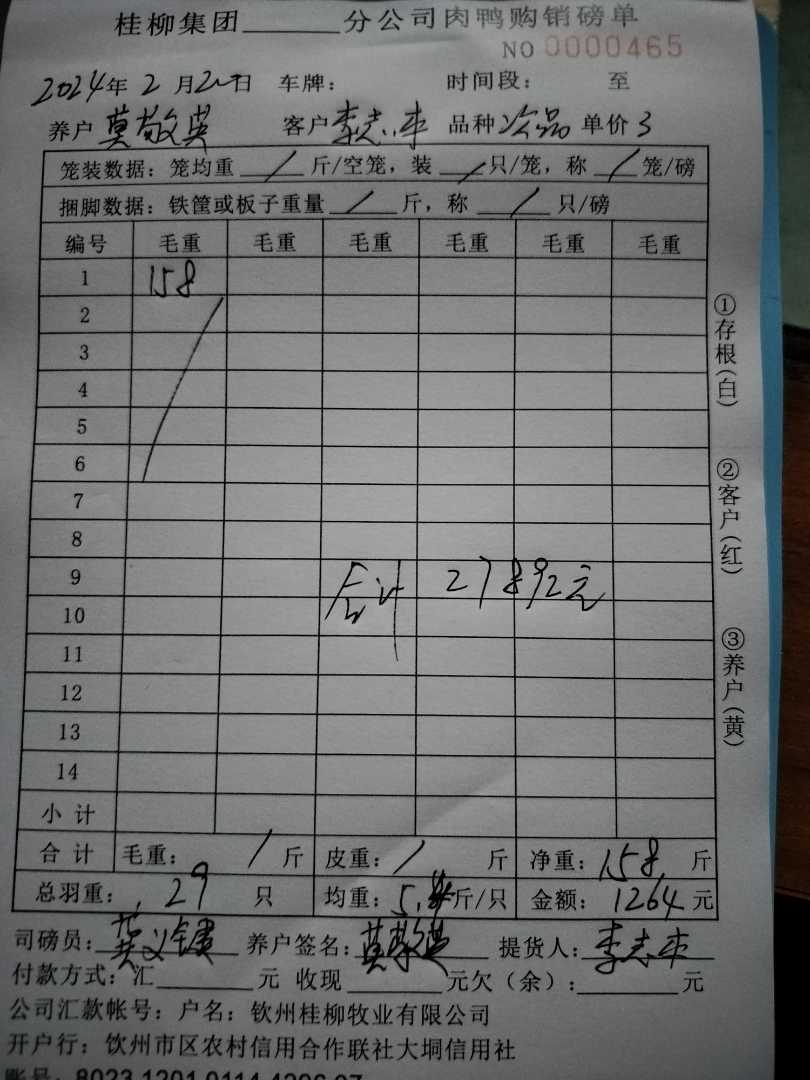 桂柳集团______分公司肉鸭购销磅单
NO 0000465
2024年2月20日 车牌: 时间段: 至
养户 莫敬英 客户 李志平 品种 次品 单价 3
笼装数据: 笼均重 / 斤/空笼, 装 / 只/笼, 称 / 笼/磅
捆脚数据: 铁筐或板子重量 / 斤, 称 / 只/磅
编号 毛重 毛重 毛重 毛重 毛重 毛重
1 158
2
3
4
5
6
7
8
9 合计 27892元
10
11
12
13
14
小计
合计 毛重: / 斤 皮重: / 斤 净重: 158 斤
总羽重: 29 只 均重: 5. 斤/只 金额: 1264 元
司磅员: 养户签名: 莫敬英 提货人: 李志平
付款方式: 汇______元 收现______元欠(余):______元
公司汇款帐号: 户名: 钦州桂柳牧业有限公司
开户行: 钦州市区农村信用合作联社大垌信用社
账号: 8023 1201 0114 4206 07
①存根(白)
②客户(红)
③养户(黄)